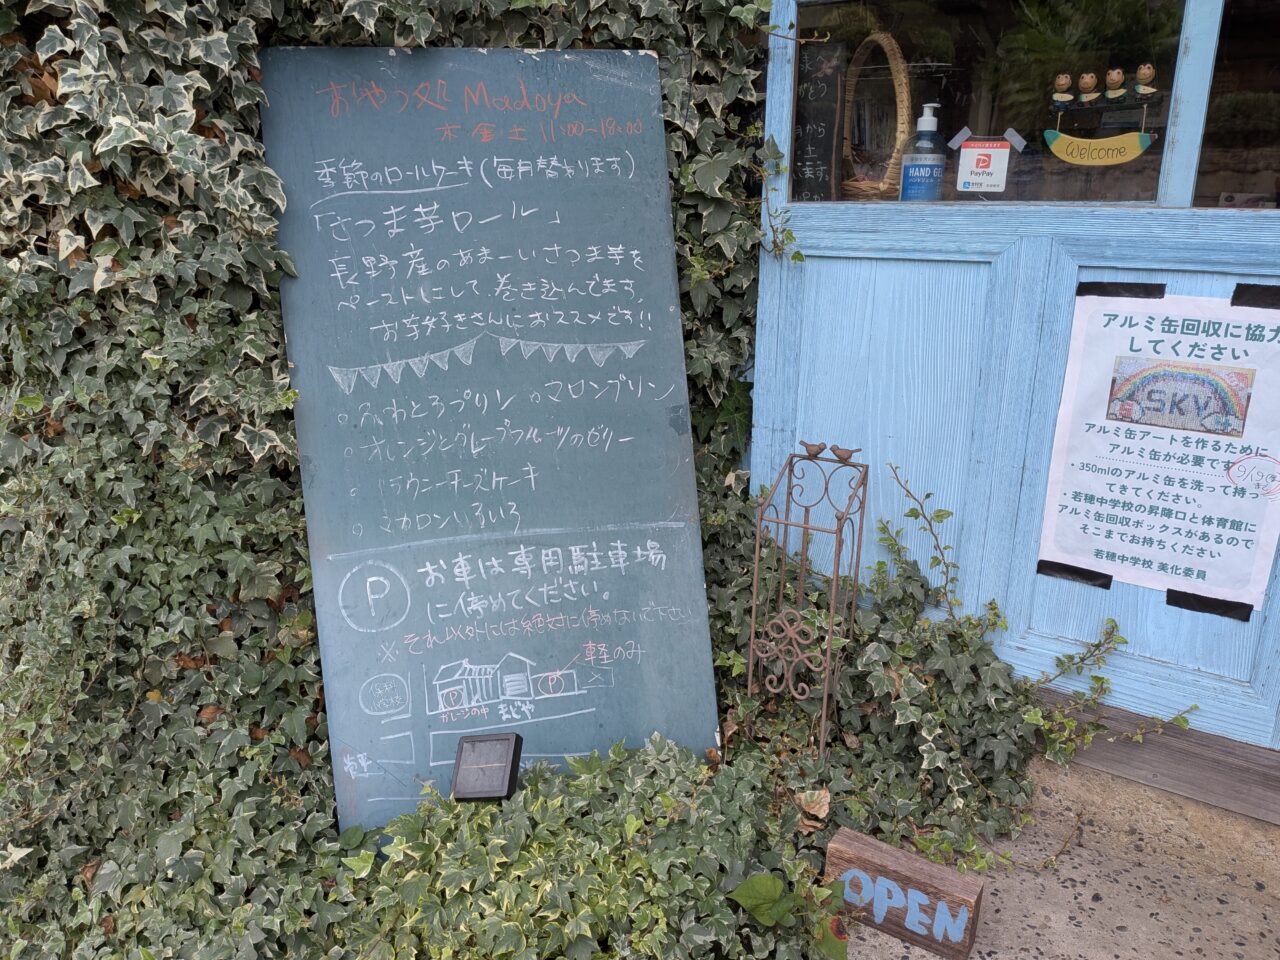 おやつ処 Madoya
木金土 11:00~18:00
季節のロールケーキ(毎月替わります)
「さつま芋ロール」
長野産のあまーいさつま芋を
ペーストにして巻き込んでます。
お芋好きさんにおススメです!!
ふわとろプリン 。マロンプリン
オレンジとグレープフルーツのゼリー
ブラウニーチーズケーキ
マカロンいろいろ
P お車は専用駐車場
に停めてください。
※それ以外には絶対に停めないで下さい
軽のみ
P P
ガレージの中 まどや
HAND GEL
ハンドジェル
PayPay
welcome
アルミ缶回収に協力
してください
SKV
アルミ缶アートを作るために
アルミ缶が必要です
9/19(金)まで
・350mlのアルミ缶を洗って持っ
てきてください。
・若穂中学校の昇降口と体育館に
アルミ缶回収ボックスがあるので
そこまでお持ちください
若穂中学校 美化委員
OPEN